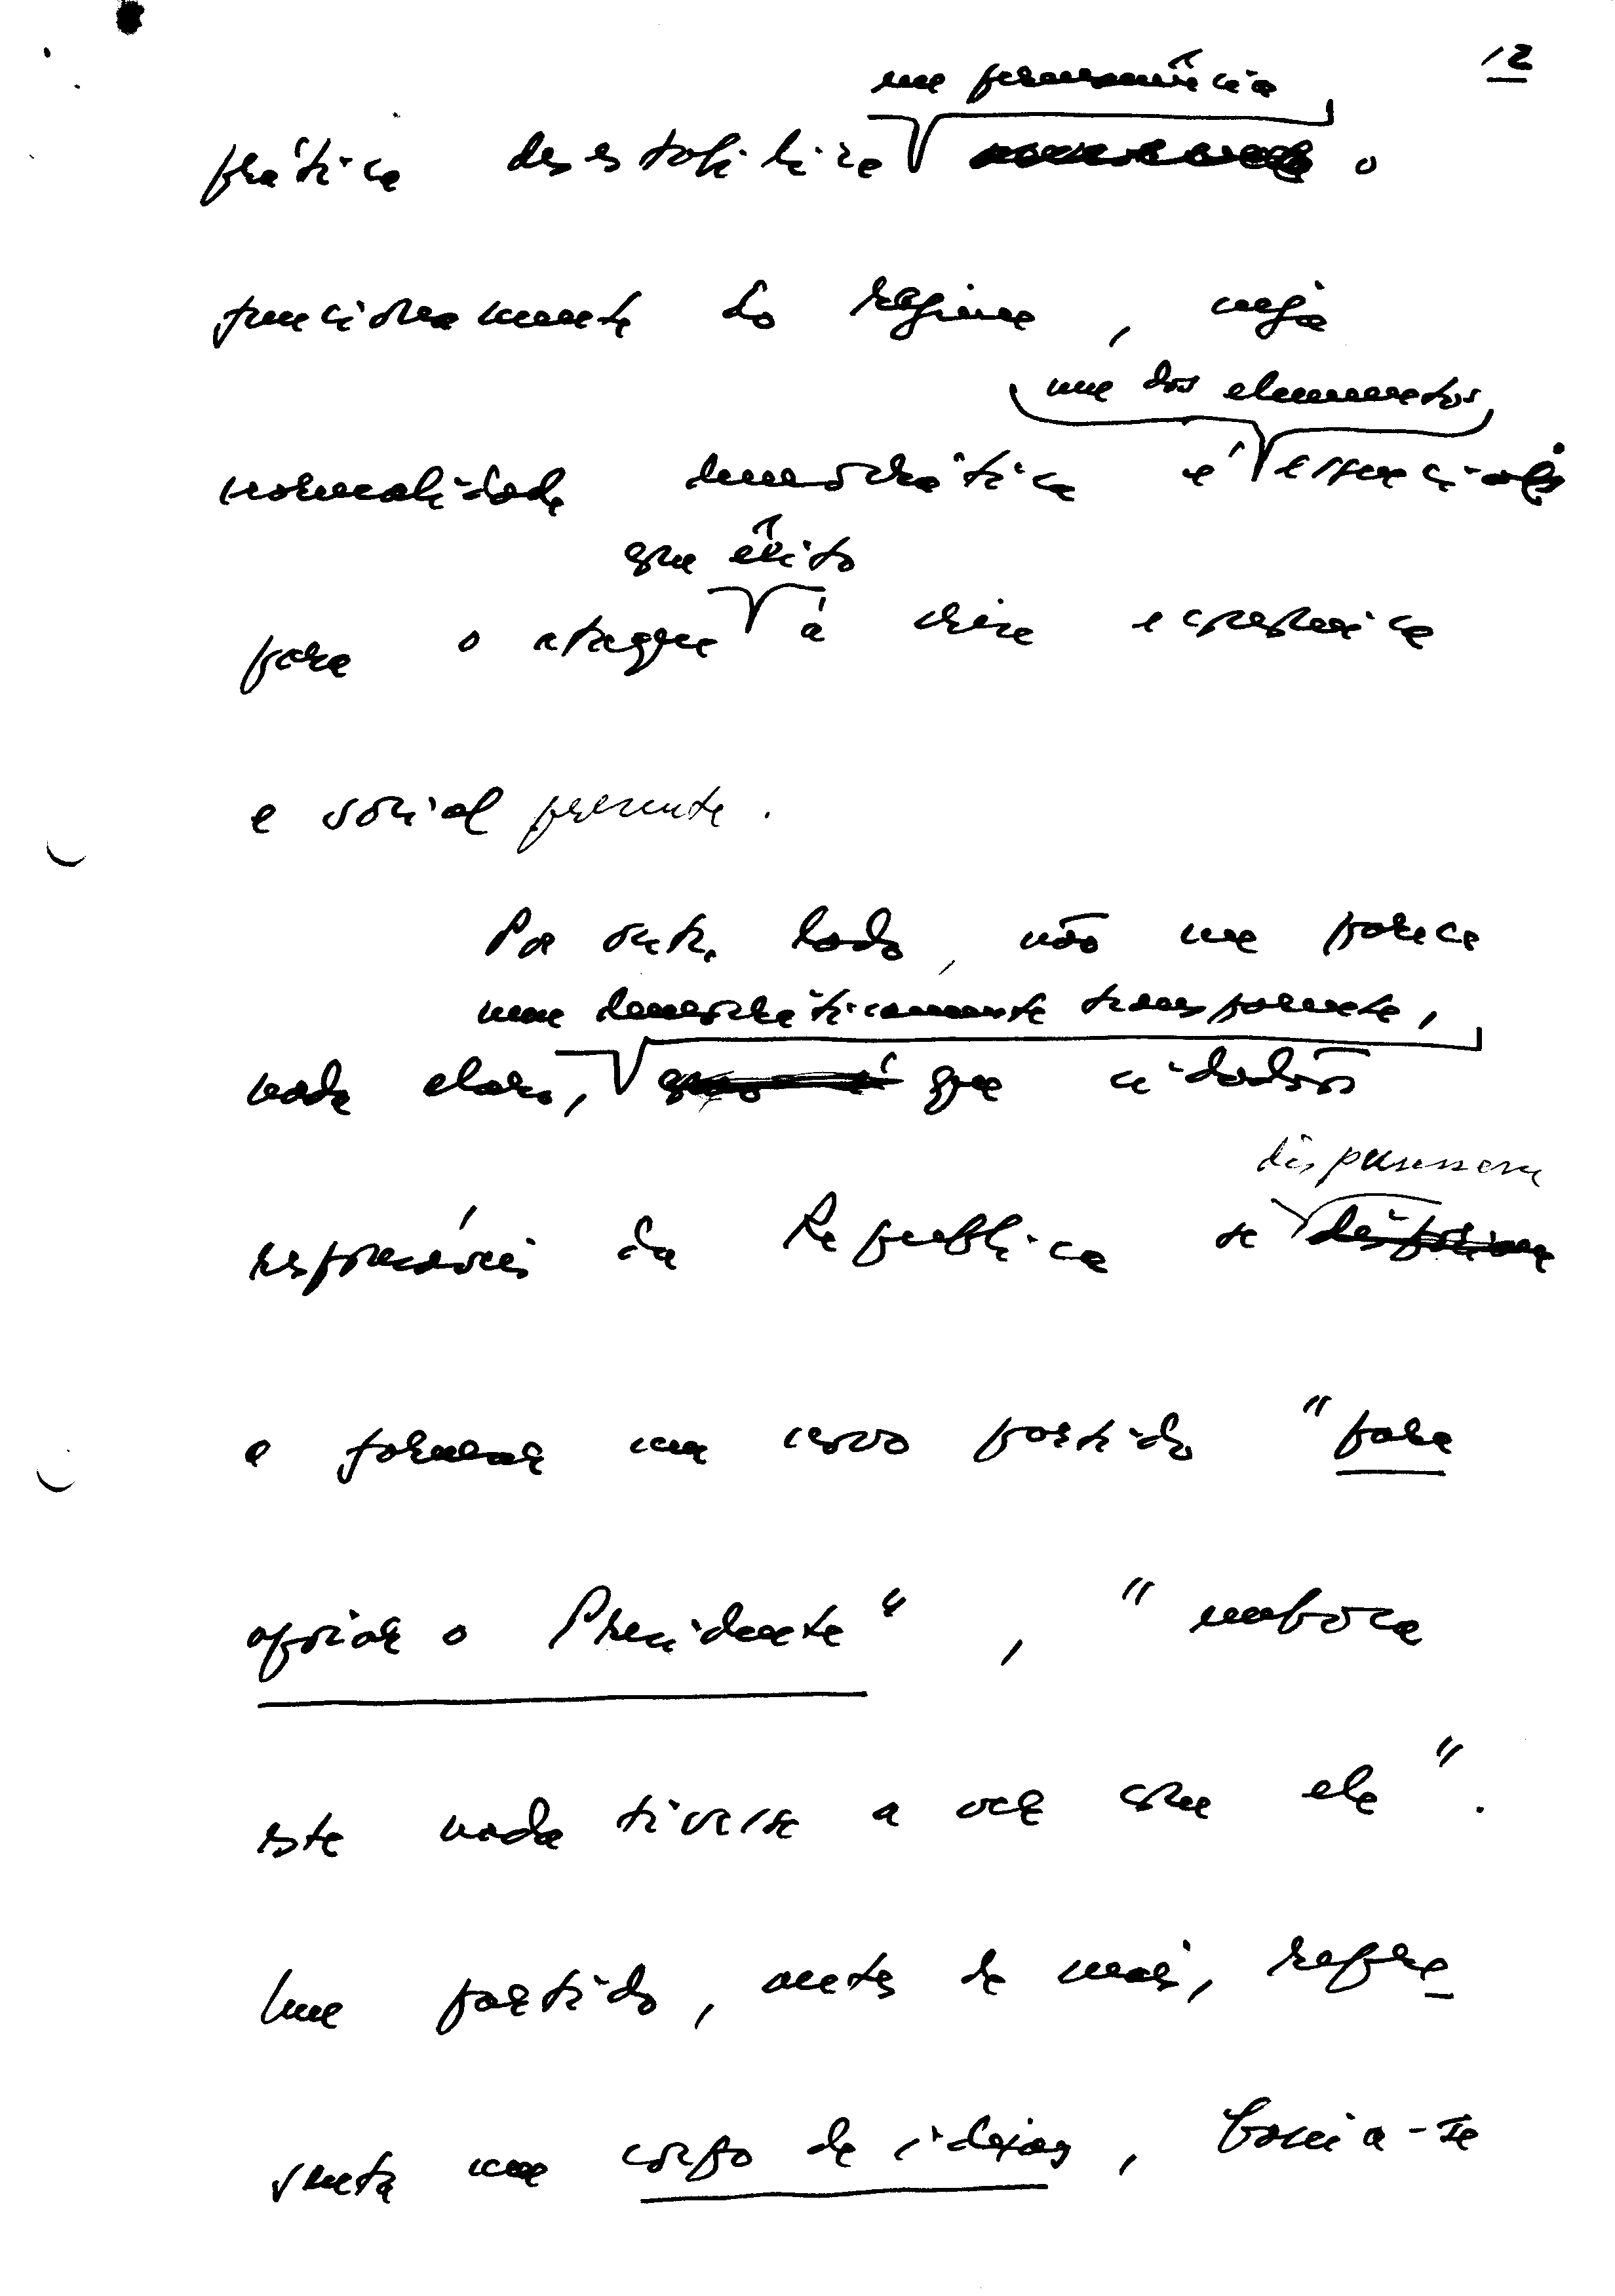 12
em permanência
prática desestabiliza o
funcionamento do regime, cuja
um dos elementos
normalidade democrática é essenciais
com êxito
para o ataque à crise económica
e social presente.
Por outro lado, não me parece
nem democraticamente transparente,
nada claro, que cidadãos
dispusessem
responsáveis da República se
a formar um novo partido "para
apoiar o Presidente", "embora
este nada tivesse a ver com ele".
Um partido, antes de mais, repre
senta um corpo de ideias, baseia-se